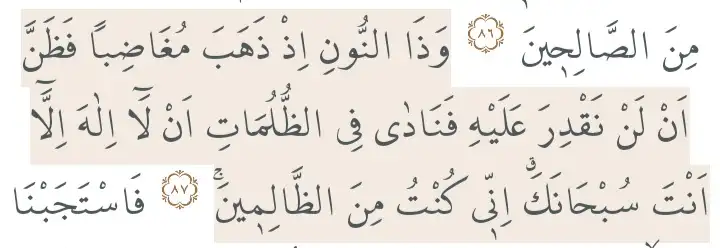 مِنَ الصَّالِح۪ينَ ﴿٨٦﴾ وَذَا النُّونِ اِذْ ذَهَبَ مُغَاضِباً فَظَنَّ
اَنْ لَنْ نَقْدِرَ عَلَيْهِ فَنَادٰى فِي الظُّلُمَاتِ اَنْ لَٓا اِلٰهَ اِلَّٓا
اَنْتَ سُبْحَانَكَۗ اِنّ۪ي كُنْتُ مِنَ الظَّالِم۪ينَۚ ﴿٨٧﴾ فَاسْتَجَبْنَا